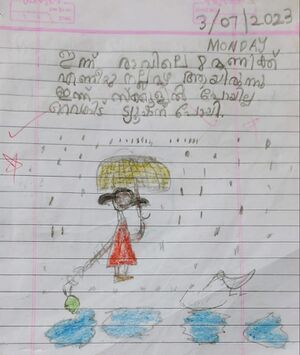 3/07/2023
MONDAY
ഇന്ന് രാവിലെ 8 മണിക്ക്
എണീറ്റു നല്ല മഴ ആയിരുന്നു
ഇന്ന് സ്കൂളിൽ പോയില്ല
ട്യൂഷന് പോയി.